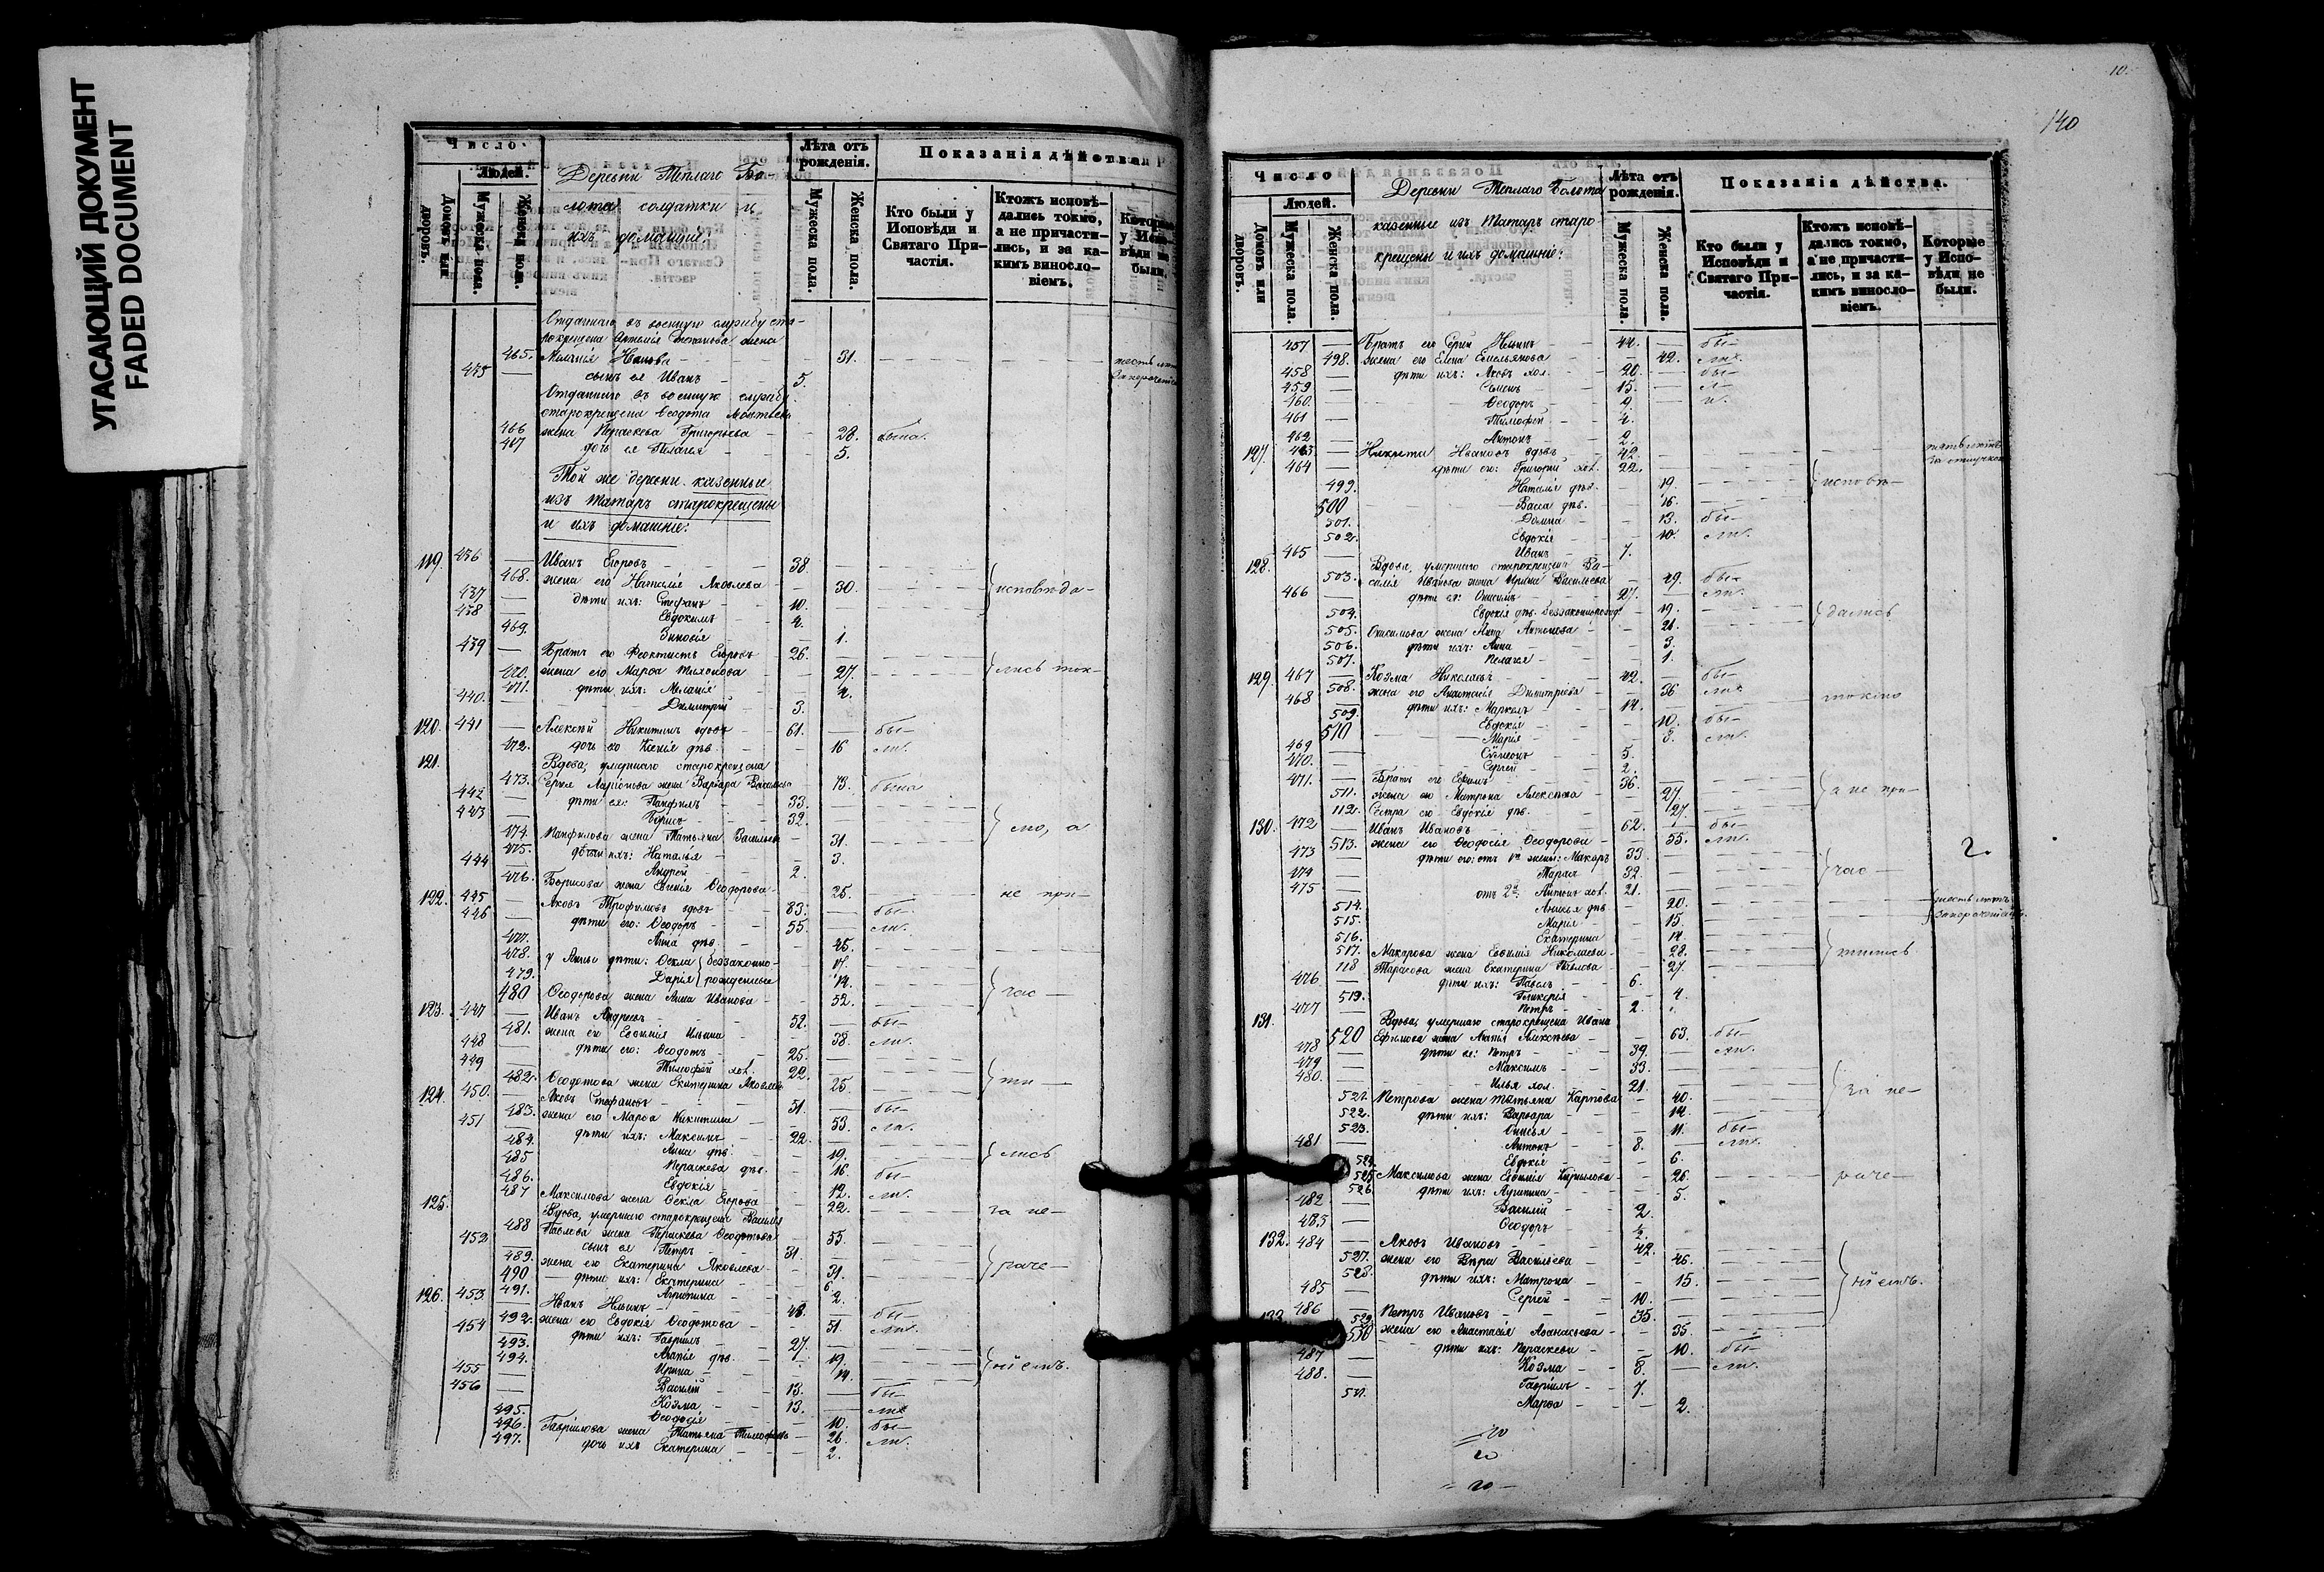 УГАСАЮЩИЙ ДОКУМЕНТ
FADED DOCUMENT
Число
Людей.
Домовъ или дворовъ.
Мужеска пола.
Женска пола.
Деревни Теплаго Бо-
лота солдатки и
ихъ домашніе.
Лѣта отъ рожденія.
Мужеска пола.
Женска пола.
Показанія дѣйства
Кто были у Исповѣди и Святаго При-частія.
Ктожъ исповѣ-дались токмо, а не причасти-лись, и за ка-кимъ виносло-віемъ.
Которые у Испо-вѣди не были.
Отданнаго въ военную службу ста-
рокрещена Степанова жена
465. 31.
435 сынъ ея Иванъ 5.
Отданнаго въ военную службу
старокрещена Ѳеодота
466 жена Параскева Григорьева 28. была.
467 дочь ея Пелагея 5.
Той же деревни казенные
изъ татаръ старокрещены
и ихъ домашніе:
119. 436 Иванъ Егоровъ 38
468. жена его Наталія Яковлева 30. исповѣда-
437 дѣти ихъ: Стефанъ 10.
438 Евдокимъ 4.
469. Зиновія 1.
439 Братъ его Феоктистъ Егоровъ 26.
470. жена его Марѳа 27. лись ток-
471. дѣти ихъ: Меланія 4.
440. Димитрій 3.
120. 441 Алексѣй Никитинъ вдовъ 61. бы-
472. дочь его Ксенія дѣв. 16 ли.
121. Вдова, умершаго старокрещена
473. Сергея Ларіонова жена Варвара Васильева 73. была
442 дѣти ея: Панфилъ 33.
443 Борисъ 32. мо, а
474. Панфилова жена Татьяна Васильева 31.
475. дѣти ихъ: Наталья 3.
444 Андрей 2.
476. Борисова жена Ѳеодорова 25. не при-
122. 445 Яковъ Трофимовъ вдовъ 83. бы-
446 дѣти его: Ѳеодоръ 55. ли.
477. Анна дѣв. 45.
478. у Анны дѣти: Ѳекла беззаконно- 17.
479. Дарія рожденные 14.
480 Ѳеодорова жена Анна Иванова 52. час-
123. 447 Иванъ Андреевъ 52. бы-
481. жена его Евѳимія Ильина 58. ли.
448 дѣти его: Ѳеодотъ 25.
449 Тимоѳей хол. 22.
482. Ѳеодотова жена Екатерина Яковлева 25. ти-
124. 450. Яковъ Стефановъ 51. бы-
483. жена его Марѳа Никитина 53. ли.
451 дѣти ихъ: Максимъ 22.
484. Анна дѣв. 19. лись
485 Параскева дѣв. 16 бы-
486. Евдокія 12. ли.
487 Максимова жена Ѳекла Егорова 22. за не-
125. Вдова, умершаго старокрещена Василія
488 Павлова жена Параскева Ѳеодотова 55.
452 сынъ ея Петръ 31.
489. жена его Екатерина Яковлева 31. раче-
490 дѣти ихъ: Екатерина 6.
491. Агрипина 2.
126. 453 Иванъ Ильинъ 48. бы-
492. жена его Евдокія Ѳеодотова 51. ли.
454 дѣти ихъ: Гавріилъ 27.
493. Агапія дѣв. 19. ніемъ.
494. Ирина 14.
455 Василій 13. бы-
456 Козма 13. ли.
495. Ѳеодосія 10. бы-
496. Гавріилова жена Татьяна Тимофеева 26. ли.
497. дочь ихъ Екатерина 2.
10.
140
Число
Людей.
Домовъ или дворовъ.
Мужеска пола.
Женска пола.
Деревни Теплаго Болота
казенные изъ татаръ старо-
крещены и ихъ домашніе:
Лѣта отъ рожденія.
Мужеска пола.
Женска пола.
Показанія дѣйства.
Кто были у Исповѣди и Святаго При-частія.
Ктожъ исповѣ-дались токмо, а не причасти-лись, и за ка-кимъ винosло-віемъ.
Которые у Испо-вѣди не были.
457 Братъ его Ильинъ 44. бы-
498. жена его Елена Емельянова 42. ли.
458 дѣти ихъ: Яковъ хол. 20. бы-
459 Семенъ 15. л-
460. Ѳеодоръ 9. и.
461 Тимофей 4.
462 Антонъ 2.
127. 463 Никита Ивановъ вдовъ 42.
464 дѣти его: Григорій хол. 22. за отлучкою
499. Наталія дѣв. 19. исповѣ-
500 Васса дѣв. 16.
501. Домна 13. бы-
502. Евдокія 10. ли.
465 Иванъ 7.
128. Вдова, умершаго старокрещена Ва-
503. силія Иванова жена Ирина Васильева 49. бы-
466 дѣти ея: Онисимъ 27. ли.
504. Евдокія дѣв. 19. дались
505. Онисимова жена Анна Антонова 21.
506. дѣти ихъ: Анна 3.
507. Пелагея 1.
129. 467 Козма Николаевъ 42. бы-
508. жена его Анастасія Димитріева 36 ли. токмо
468 дѣти ихъ: Маркелъ 14.
509. Евдокія 10. бы-
510 Марія 5. ли.
469 Симеонъ 5.
470. Сергей 2.
471. Братъ его Евѳимъ 36.
511. жена его Матрона Алексѣева 27 а не при-
112. Сестра его Евдокія дѣв. 27.
130. 472 Иванъ Ивановъ 62. бы-
513. жена его Ѳеодосія Ѳеодорова 55. ли.
2.
473 дѣти его: отъ 1й жены: Макаръ 33.
474 Тарасъ 32. час-
475 отъ 2й Антонъ хол. 21.
514. Анисья дѣв. 20.
515. Марія 15.
516. Екатерина 14.
517. Макарова жена Евѳимія Николаева 28. тились
118 Тарасова жена Екатерина Павлова 27.
476 дѣти ихъ: Павелъ 6.
519. Гликерія 4.
477 Петръ 2.
131. Вдова, умершаго старокрещена Ивана
520 Ефимова жена Агапія Алексѣева 63. бы-
478 дѣти ея: Петръ 39. ли.
479 Максимъ 33.
480. Илья хол. 21. за не-
521. Петрова жена Татьяна Карпова 40.
522. дѣти ихъ: Варвара 14.
523. Анисья 11. бы-
481 Антонъ 8. ли.
524 Евдокія 6.
525 Максимова жена Евѳимія Кирилова 26. раче-
526 дѣти ихъ: Агрипина 5.
482 Василій 2.
483 Ѳеодоръ
132. 484 Яковъ Ивановъ 42.
527. жена его Вѣра Васильева 46.
528. дѣти ихъ: Матрона 15. ніемъ.
485 Сергей 10.
133 486 Петръ Ивановъ 35.
529. жена его Анастасія Аѳанасьева 35.
530 дѣти ихъ: Параскева 10. бы-
487 Козма 8. ли.
488. Гавріилъ 7.
531. Марѳа 2.